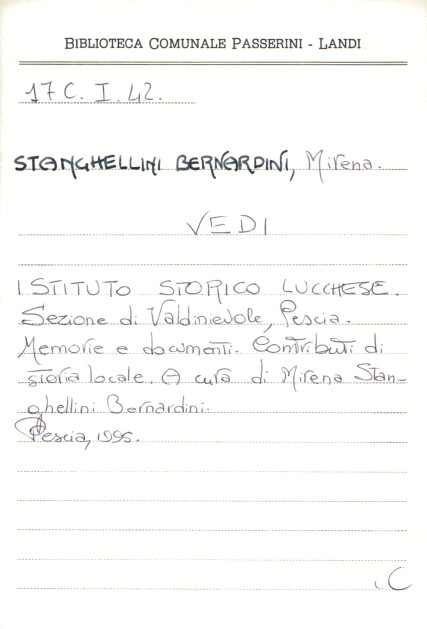 BIBLIOTECA COMUNALE PASSERINI - LANDI
17 C. I. 42.
STANGHELLINI BERNARDINI, Mirena.
VEDI
ISTITUTO STORICO LUCCHESE.
Sezione di Valdinievole, Pescia.
Memorie e documenti. Contributi di
storia locale. A cura di Mirena Stan-
ghellini Bernardini.
Pescia, 1995.
C